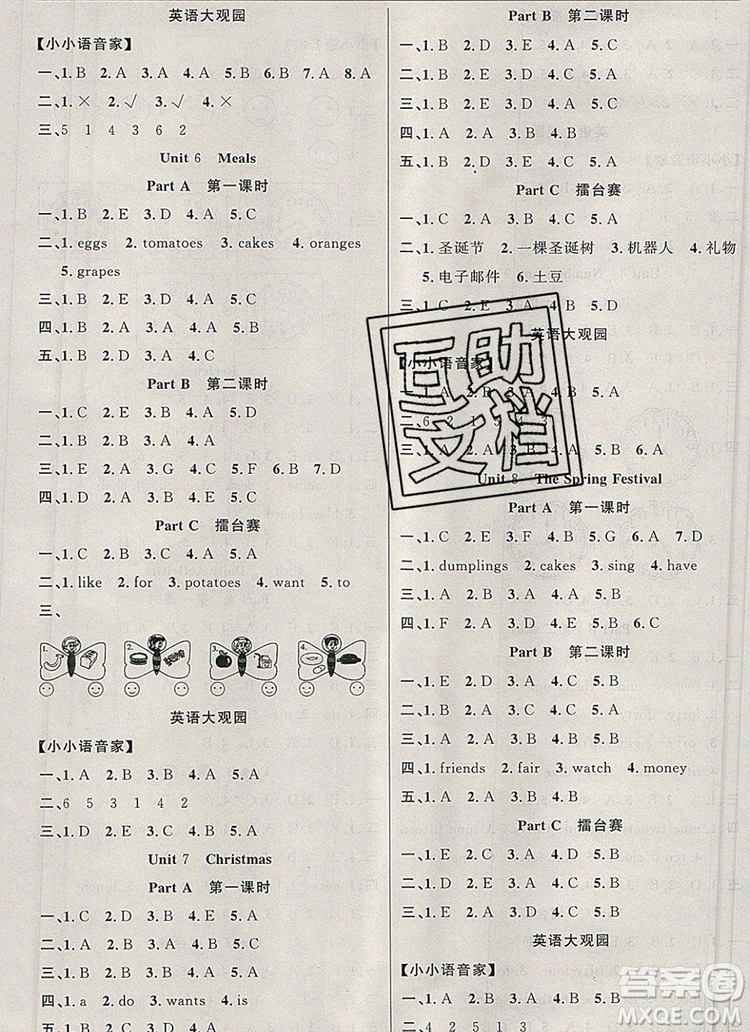 英语大观园
【小小语音家】
一、1. B 2. A 3. A 4. A 5. B 6. B 7. A 8. A
二、1. × 2. √ 3. √ 4. ×
三、5 1 4 3 6 2
Unit 6 Meals
Part A 第一课时
一、1. B 2. E 3. D 4. A 5. C
二、1. eggs 2. tomatoes 3. cakes 4. oranges
5. grapes
三、1. B 2. B 3. A 4. B 5. B
四、1. B 2. B 3. A 4. A 5. A
五、1. B 2. E 3. D 4. A 5. C
Part B 第二课时
一、1. B 2. A 3. A 4. B 5. A
二、1. A 2. A 3. B 4. B 5. A
三、1. E 2. A 3. G 4. C 5. F 6. B 7. D
四、1. D 2. A 3. C 4. E 5. B
Part C 擂台赛
一、1. C 2. B 3. A 4. B 5. C
二、1. like 2. for 3. potatoes 4. want 5. to
三、
1. 2. 3. 4.
英语大观园
【小小语音家】
一、1. A 2. B 3. B 4. B 5. A
二、6 5 3 1 4 2
三、1. B 2. A 3. C 4. B 5. A
Unit 7 Christmas
Part A 第一课时
一、1. C 2. D 3. B 4. E 5. A
二、1. B 2. D 3. A 4. E 5. C
三、1. B 2. B 3. A 4. B 5. A
四、1. a 2. do 3. wants 4. is
Part B 第二课时
一、1. B 2. D 3. A 4. C 5. E
二、1. B 2. A 3. A 4. B 5. A
三、1. B 2. D 3. E 4. A 5. C
四、1. C 2. A 3. B 4. C 5. A 6. B
五、1. B 2. D 3. E 4. C 5. A
Part C 擂台赛
一、1. B 2. A 3. C 4. B 5. A
二、1. 圣诞节 2. 一棵圣诞树 3. 机器人 4. 礼物
5. 电子邮件 6. 土豆
三、1. C 2. E 3. A 4. B 5. D
英语大观园
【小小语音家】
一、1. A
二、6 2 1 5 4 3
三、1. B 2. A 4. A 5. B 6. A
Unit 8 The Spring Festival
Part A 第一课时
一、1. C 2. E 3. F 4. B 5. A 6. A 7. D
二、1. dumplings 2. cakes 3. sing 4. have
三、1. D 2. C 3. A 4. B 5. E
四、1. F 2. A 3. D 4. E 5. B 6. C
Part B 第二课时
一、1. A 2. E 3. D 4. B 5. C
二、1. A 2. B 3. B 4. A 5. B
三、1. A 2. B 3. B 4. A 5. A
四、1. friends 2. fair 3. watch 4. money
五、1. B 2. A 3. B 4. B
Part C 擂台赛
一、1. E 2. C 3. D 4. A 5. B
二、1. C 2. A 3. A 4. A 5. B
三、1. B 2. A 3. A 4. B 5. B
英语大观园
【小小语音家】
一、1. C 2. A 3. A 4. B 5. B
二、4 2 5 1 3
互助
文档
答案圈
MXQE.COM